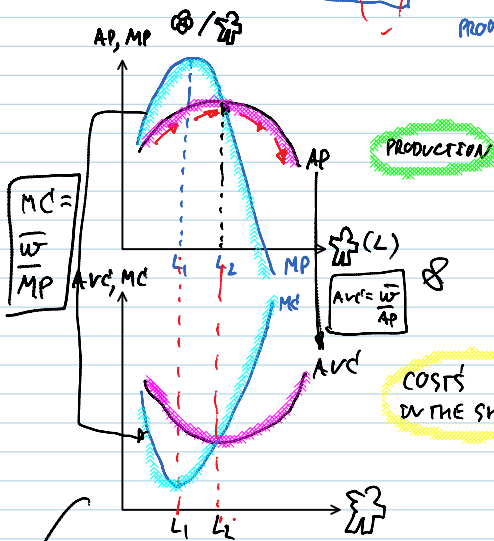 PROD
AP, MP
/
AP
PRODUCTION
MC =
w̅
MP
L₁
L₂
MP
(L)
AVC, MC
MC
AVC = w̅
AP
AVC
COSTS
IN THE SH
L₁
L₂